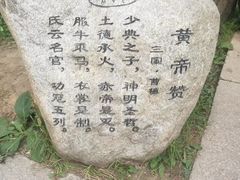 黄帝赞
三国，曹植
少典之子，神明圣哲。
土德承火，赤帝是灭。
服牛乘马，衣裳是制。
氏云名官，功冠五列。